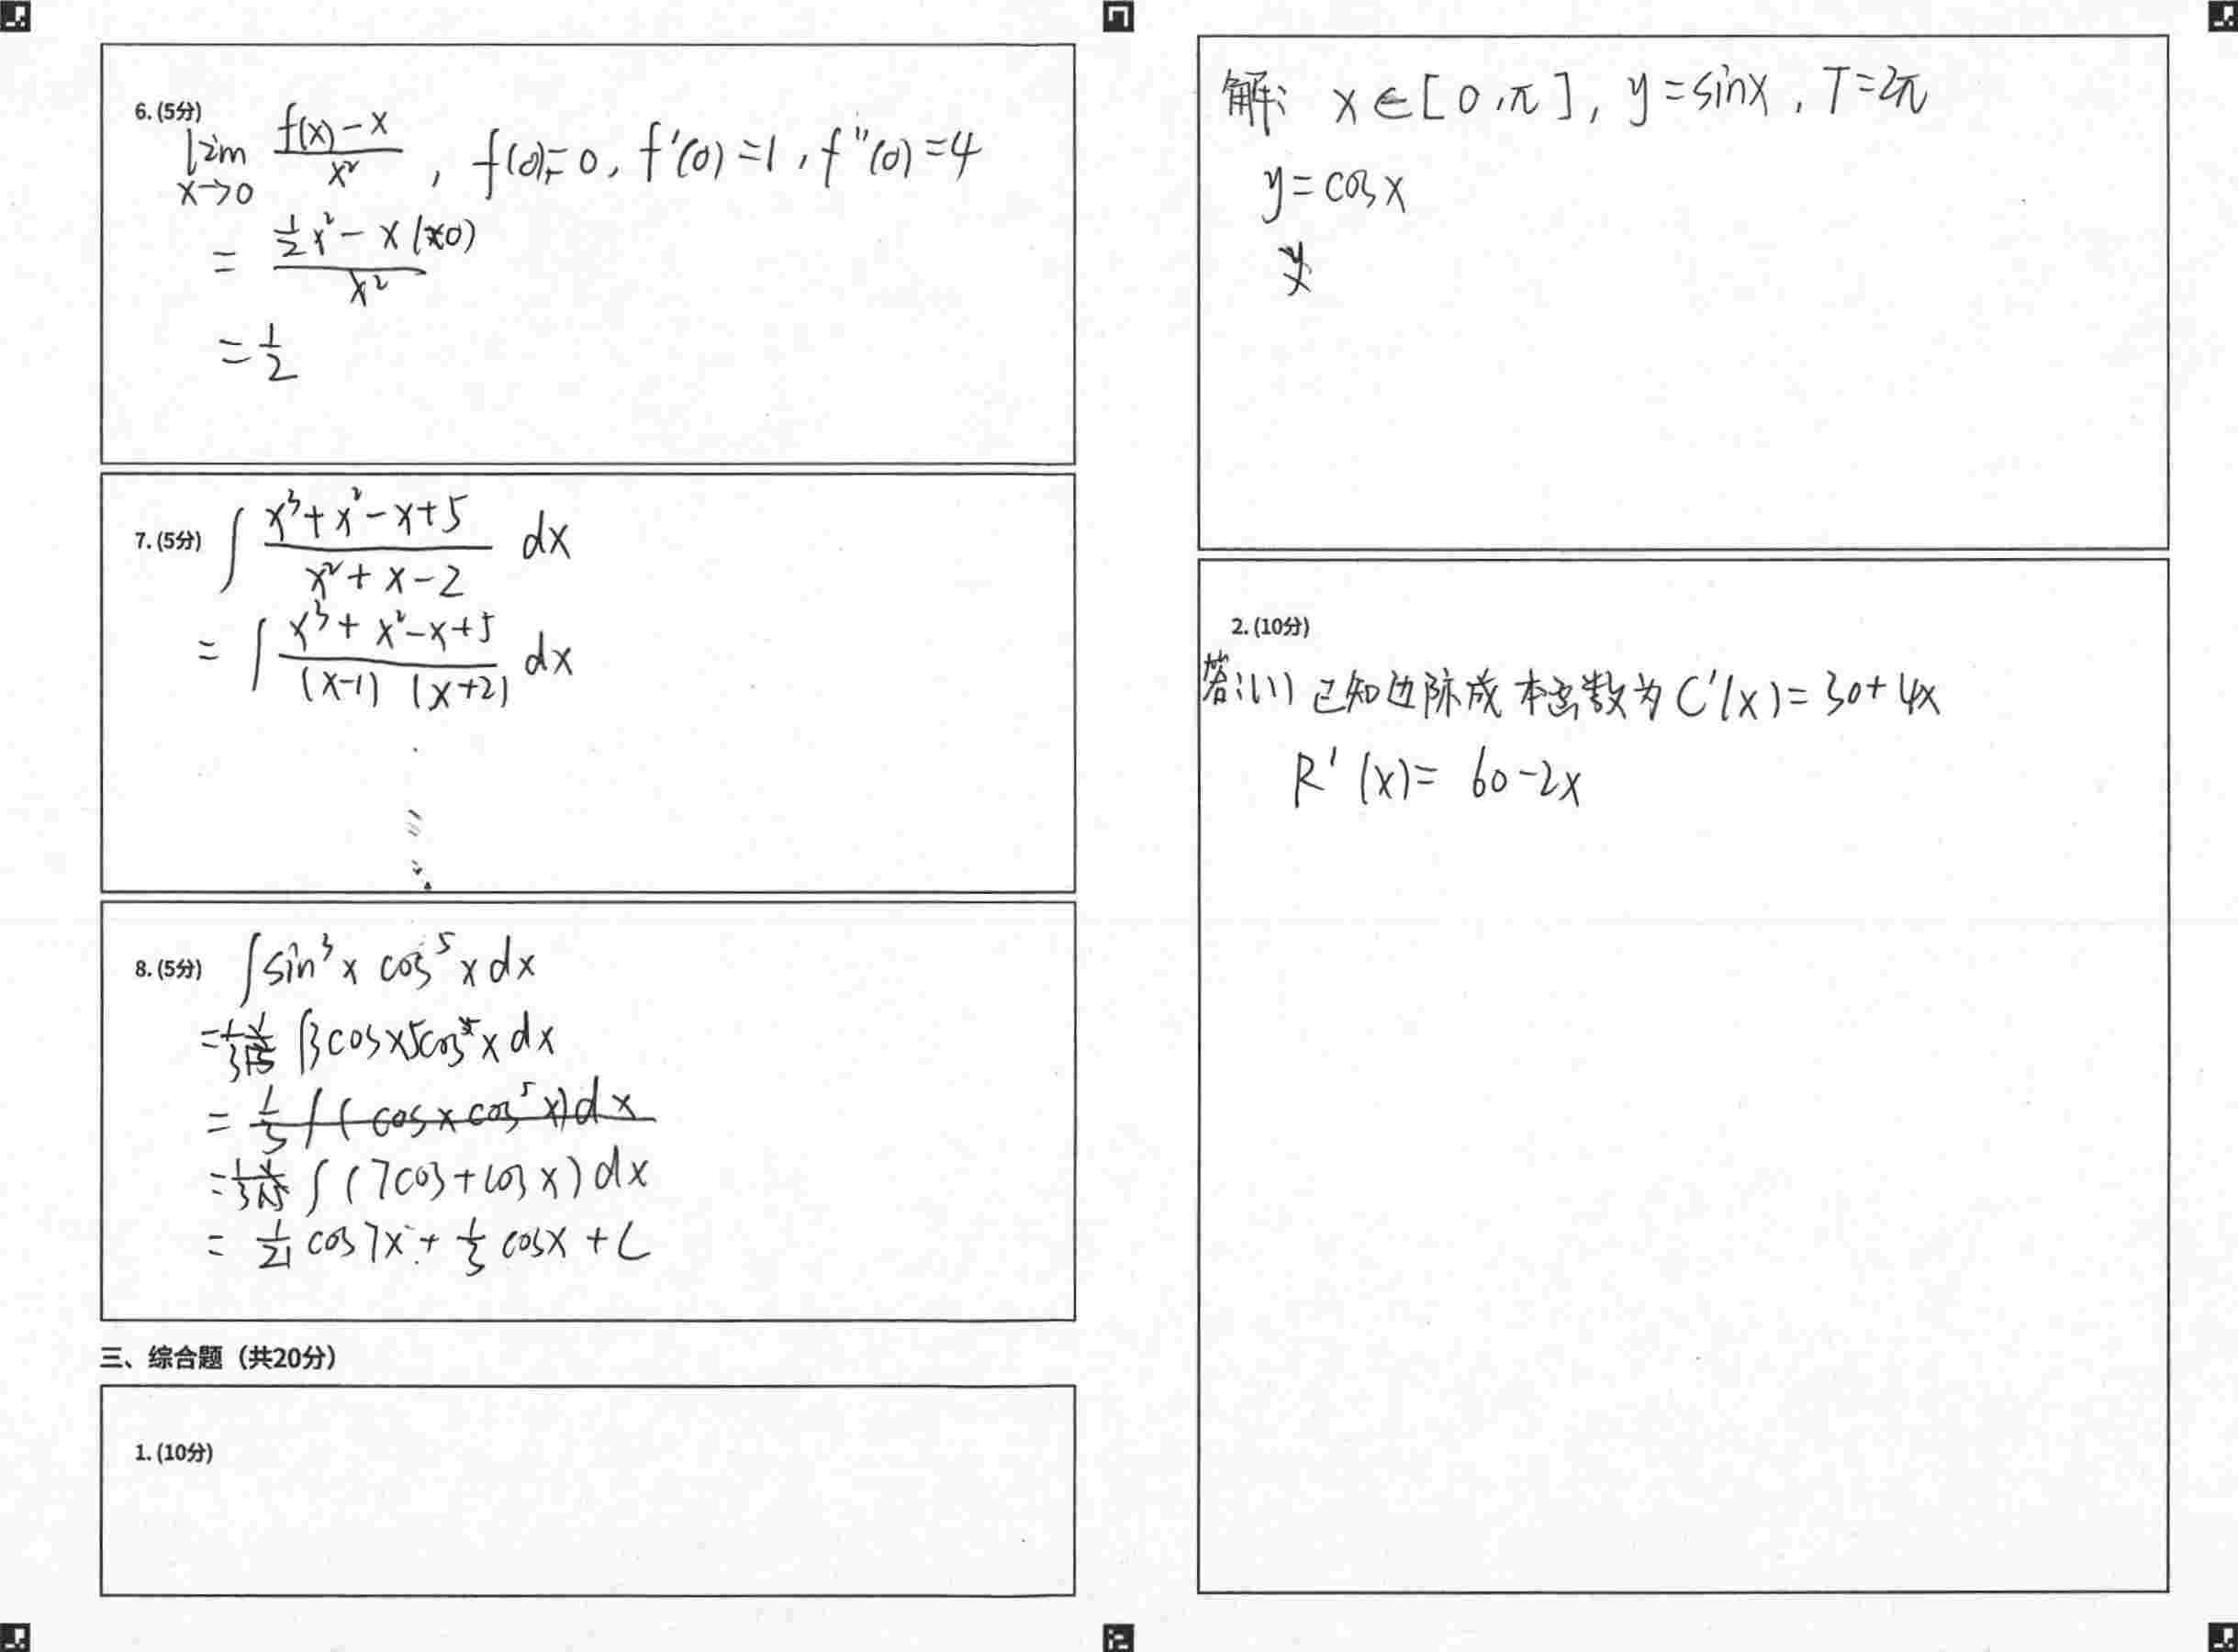 6. (5分)
lim x→0 (f(x)-x)/x², f(0)=0, f'(0)=1, f''(0)=4
= (½x²-x(x0))/x²
= 1/2
7. (5分) ∫ (x³+x²-x+5)/(x²+x-2) dx
= ∫ (x³+x²-x+5)/((x-1)(x+2)) dx
8. (5分) ∫sin³x cos⁵x dx
= 1/3 ∫3cosx5cos x dx
= 1/3 ∫(cosx cos⁵x)dx
= 1/3 ∫(7cos+cosx)dx
= 1/21 cos7x + 1/3 cosx + C
三、综合题（共20分）
1. (10分)
解: x∈[0,π], y=sinx, T=2π
y=cosx
y
2. (10分)
答:(1) 已知边际成本函数为C'(x)=30+4x
R'(x)=60-2x